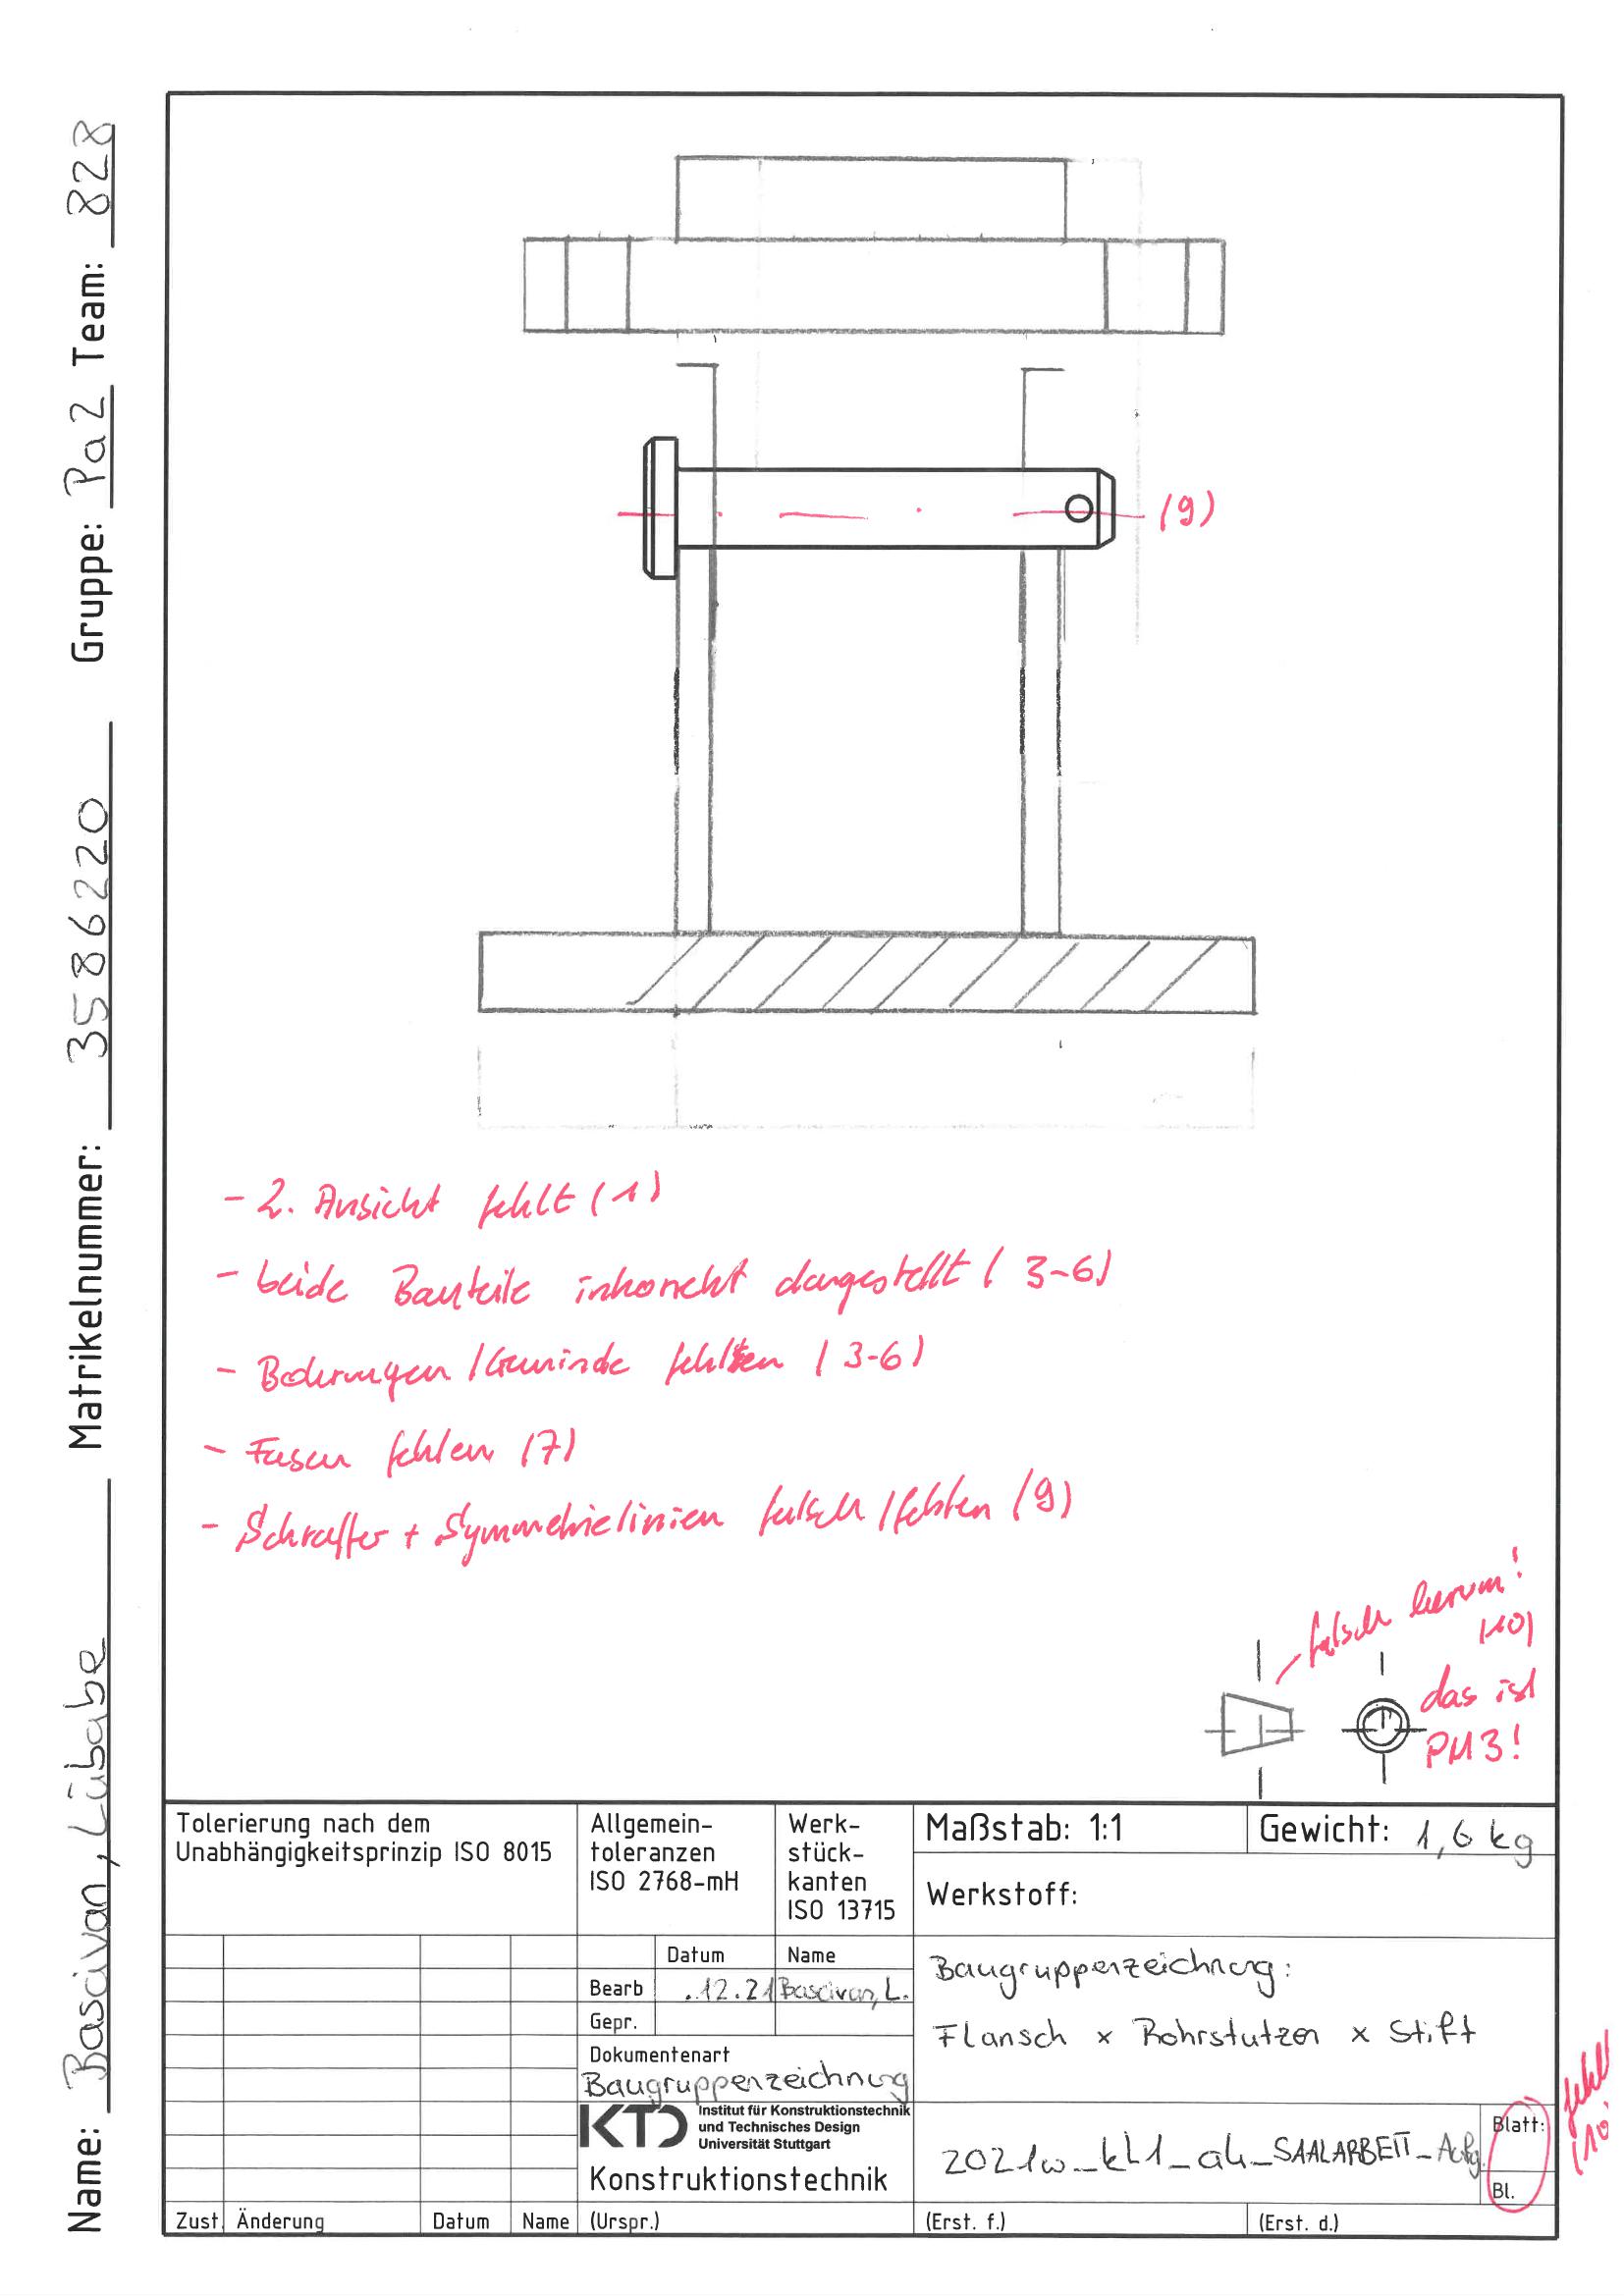 Name: Bascivan, Lübabe Matrikelnummer: 3586220 Gruppe: Pa2 Team: 828
(9)
- 2. Ansicht fehlt (1)
- beide Bauteile inkorrekt dargestellt (3-6)
- Bohrungen / Gewinde fehlen (3-6)
- Fasen fehlen (7)
- Schraffer + Symmetrielinien falsch / fehlten (9)
falsch herum!
(10)
das ist
PM3!
Tolerierung nach dem
Unabhängigkeitsprinzip ISO 8015
Allgemein-
toleranzen
ISO 2768-mH
Werk-
stück-
kanten
ISO 13715
Maßstab: 1:1
Gewicht: 1,6 kg
Werkstoff:
Datum Name
Bearb .12.21 Bascivan, L.
Gepr.
Dokumentenart
Baugruppenzeichnung
Baugruppenzeichnung:
Flansch x Rohrstutzen x Stift
KTD Institut für Konstruktionstechnik
und Technisches Design
Universität Stuttgart
Konstruktionstechnik
2021w_kL1_ah_SAALARBEIT_Aufg.
Blatt:
Bl.
fehlt
(10)
Zust. Änderung Datum Name (Urspr.) (Erst. f.) (Erst. d.)